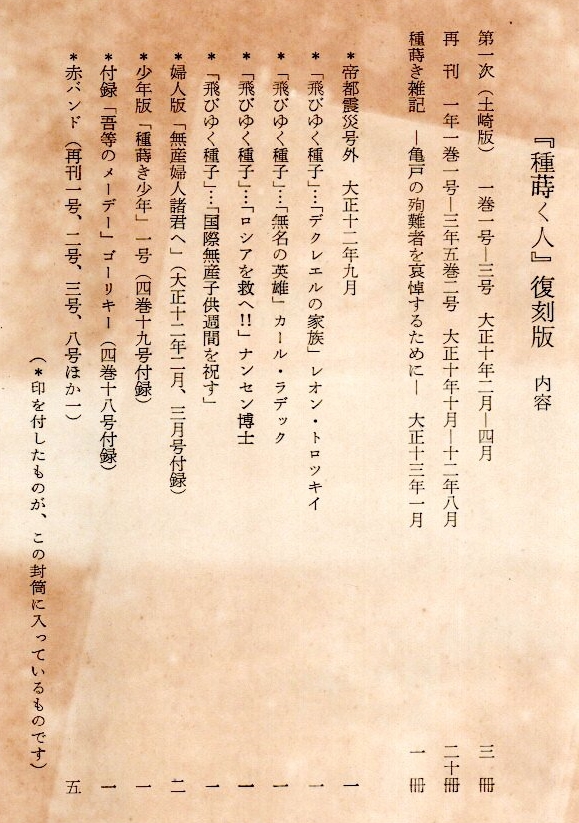 『種蒔く人』復刻版　内容
第一次（土崎版）　一巻一号―三号　大正十年二月―四月　三冊
再　刊　一年一巻一号―三年五巻二号　大正十年十月―十二年八月　二十冊
種蒔き雑記　―亀戸の殉難者を哀悼するために―　大正十三年一月　一冊
＊帝都震災号外　大正十二年九月　一
＊「飛びゆく種子」…「デクレエルの家族」レオン・トロツキイ　一
＊「飛びゆく種子」…「無名の英雄」カール・ラデック　一
＊「飛びゆく種子」…「ロシアを救へ!!」ナンセン博士　一
＊「飛びゆく種子」…「国際無産子供週間を祝す」　一
＊婦人版「無産婦人諸君へ」（大正十二年二月、三月号付録）　二
＊少年版「種蒔き少年」一号（四巻十九号付録）　一
＊付録「吾等のメーデー」ゴーリキー（四巻十八号付録）　一
＊赤バンド（再刊一号、二号、三号、八号ほか一）　五
（＊印を付したものが、この封筒に入っているものです）